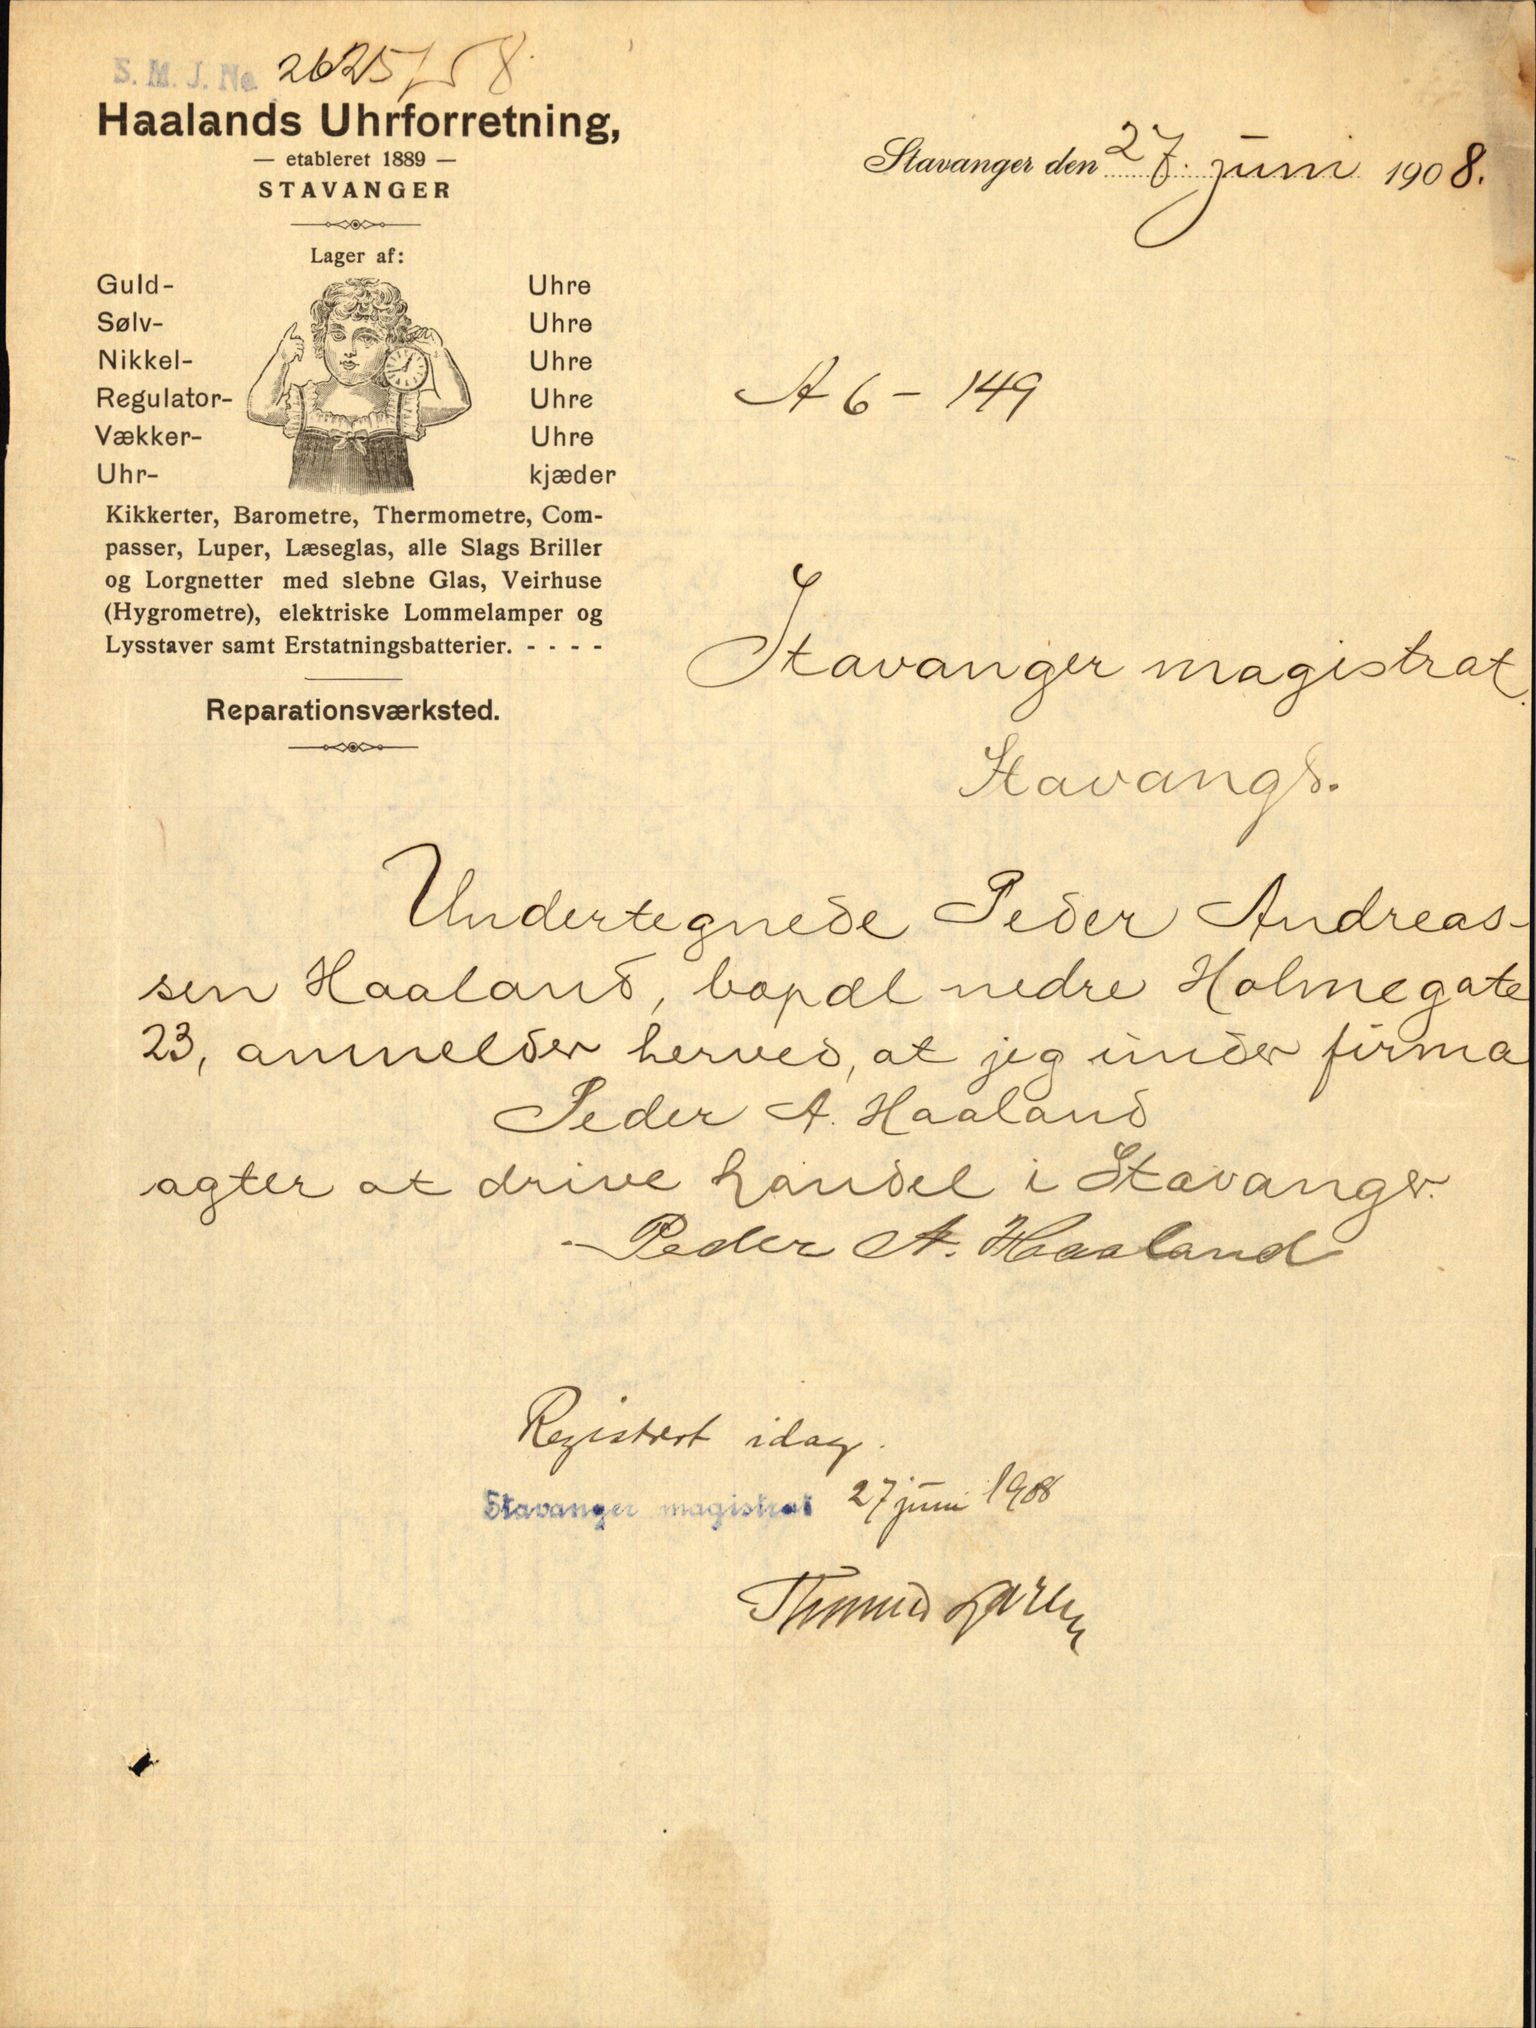 S. M. J. No. 2625/08
Haalands Uhrforretning,
— etableret 1889 —
STAVANGER
Stavanger den 27. juni 1908.
Lager af:
Guld- Uhre
Sølv- Uhre
Nikkel- Uhre
Regulator- Uhre
Vækker- Uhre
Uhr- kjæder
A 6 - 149
Kikkerter, Barometre, Thermometre, Com-
passer, Luper, Læseglas, alle Slags Briller
og Lorgnetter med slebne Glas, Veirhuse
(Hygrometre), elektriske Lommelamper og
Lysstaver samt Erstatningsbatterier. - - - -
Reparationsværksted.
Stavanger magistrat.
Stavanger.
Undertegnede Peder Andreas-
sen Haaland, bopæl nedre Holmegate
23, anmelder herved, at jeg under firma
Peder A. Haaland
agter at drive handel i Stavanger.
Peder A. Haaland
Registrert idag.
Stavanger magistrat 27 juni 1908